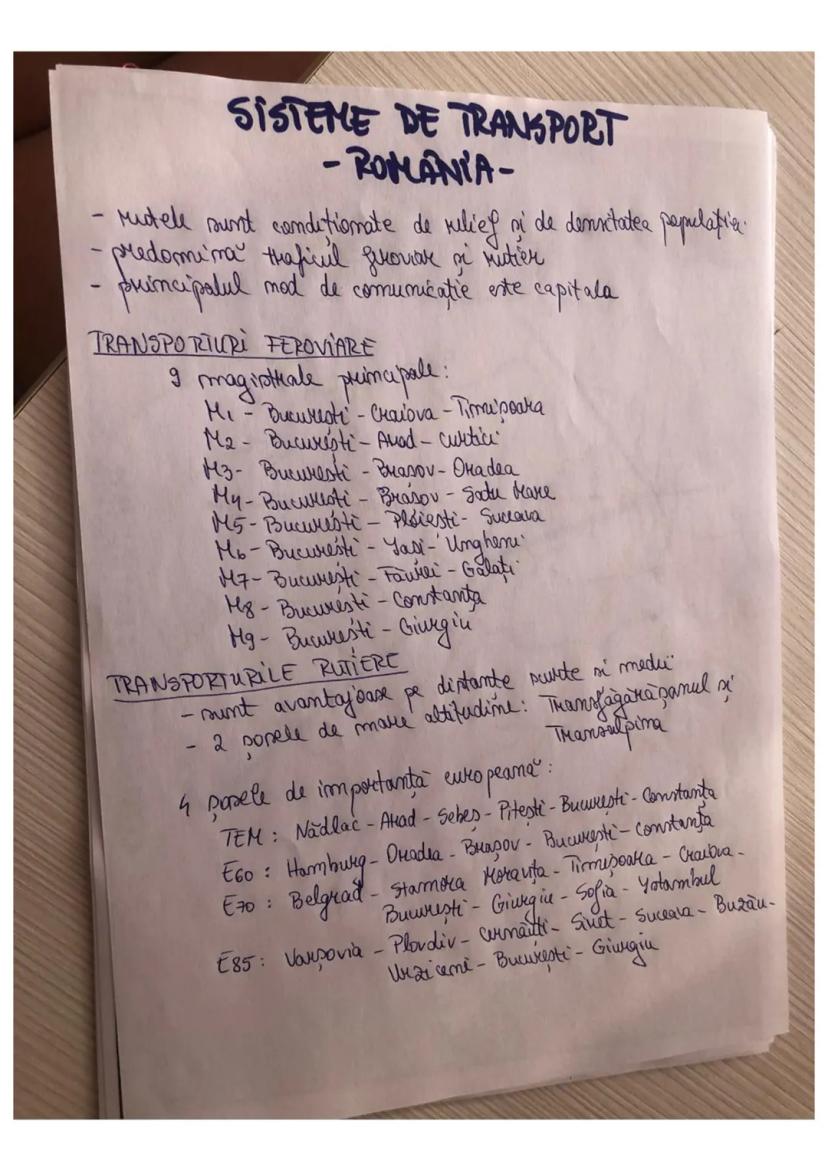 SISTEME DE TRANSPORT
- ROMÂNIA -
- rutele sunt condiționate de relief și de densitatea populației.
- predomină traficul feroviar și rutier
- principalul mod de comunicație este capitala
TRANSPORTURI FEROVIARE
9 magistrale principale:
M1 - București - Craiova - Timișoara
M2 - București - Arad - Curtici
M3 - București - Brașov - Oradea
M4 - București - Brașov - Satu Mare
M5 - București - Ploiești - Suceava
M6 - București - Iași - Ungheni
M7 - București - Făurei - Galați
M8 - București - Constanța
M9 - București - Giurgiu
TRANSPORTURILE RUTIERE
- sunt avantajoase pe distanțe scurte și medii
- 2 șosele de mare altitudine: Transfăgărășanul și
Transalpina
4 șosele de importanță europeană:
TEM: Nădlac - Arad - Sebeș - Pitești - București - Constanța
E60: Hamburg - Oradea - Brașov - București - Constanța
E70: Belgrad - Stamora Moravița - Timișoara - Craiova -
București - Giurgiu - Sofia - Istambul
E85: Varșovia - Plovdiv - Cernăuți - Siret - Suceava - Buzău -
Urziceni - București - Giurgiu